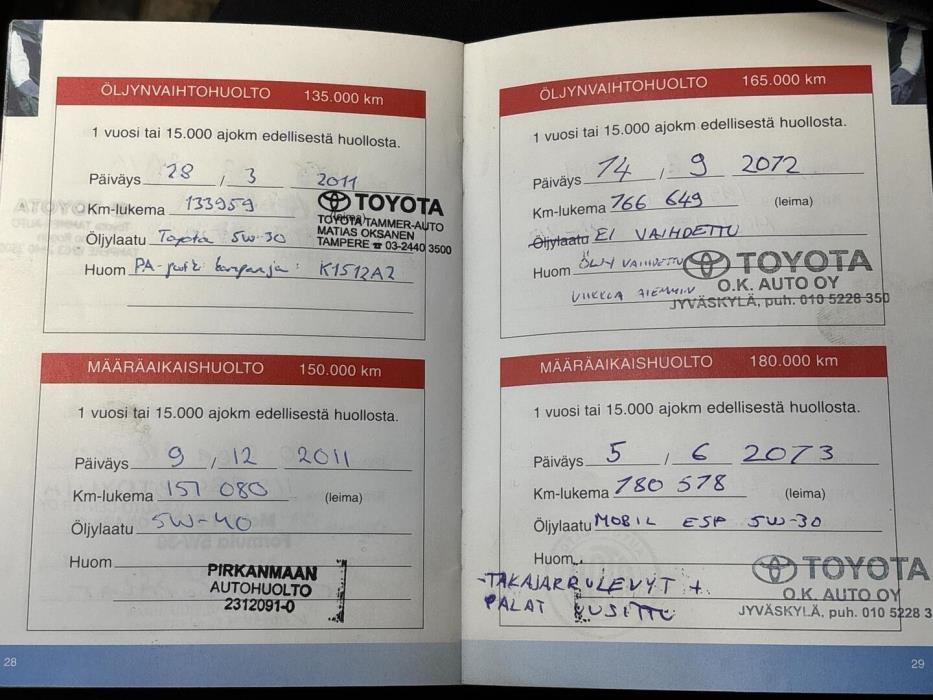 ÖLJYNVAIHTOHUOLTO 135.000 km
1 vuosi tai 15.000 ajokm edellisestä huollosta.
Päiväys 28 / 3 2011
Km-lukema 133959 (leima)
Öljylaatu Toyota 5W-30
Huom K1512A2
TOYOTA
TOYOTA TAMMER-AUTO
MATIAS OKSANEN
TAMPERE ☎ 03-2440 3500
MÄÄRÄAIKAISHUOLTO 150.000 km
1 vuosi tai 15.000 ajokm edellisestä huollosta.
Päiväys 9 / 12 2011
Km-lukema 151 080 (leima)
Öljylaatu 5W-40
Huom
PIRKANMAAN
AUTOHUOLTO
2312091-0
28
ÖLJYNVAIHTOHUOLTO 165.000 km
1 vuosi tai 15.000 ajokm edellisestä huollosta.
Päiväys 14 / 9 2012
Km-lukema 166 649 (leima)
Öljylaatu EI VAIHDETTU
Huom ÖLJY VAIHDETTU
VIIKKOA AIEMMIN
TOYOTA
O.K. AUTO OY
JYVÄSKYLÄ, puh. 010 5228 350
MÄÄRÄAIKAISHUOLTO 180.000 km
1 vuosi tai 15.000 ajokm edellisestä huollosta.
Päiväys 5 / 6 2013
Km-lukema 180 578 (leima)
Öljylaatu MOBIL ESP 5W-30
Huom
-TAKAJARRULEVYT +
PALAT UUSITTU
TOYOTA
O.K. AUTO OY
JYVÄSKYLÄ, puh. 010 5228 3
29